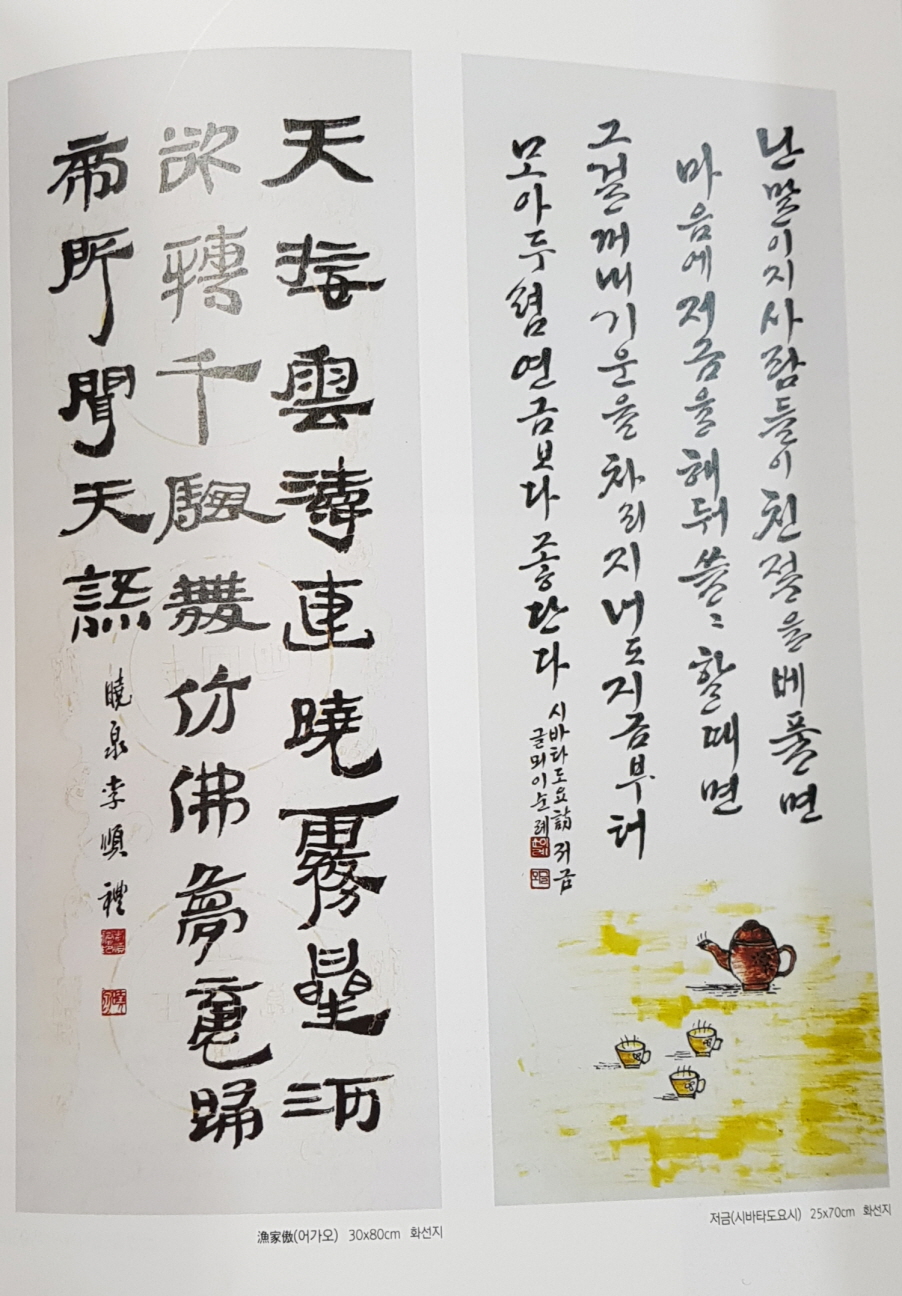 天接雲濤連曉霧星河
欲轉千颿舞仿佛夢魂歸
帝所聞天語
曉泉 李順禮
漁家傲(어가오) 30x80cm 화선지
난 말이지 사람들이 친절을 베풀면
마음에 저금을 해둬 쓸〻할 때면
그걸 꺼내 기운을 차리지 너도 지금부터
모아두렴 연금보다 좋단다
시바타도요 詩 저금
글뫼 이순례
저금(시바타도요시) 25x70cm 화선지